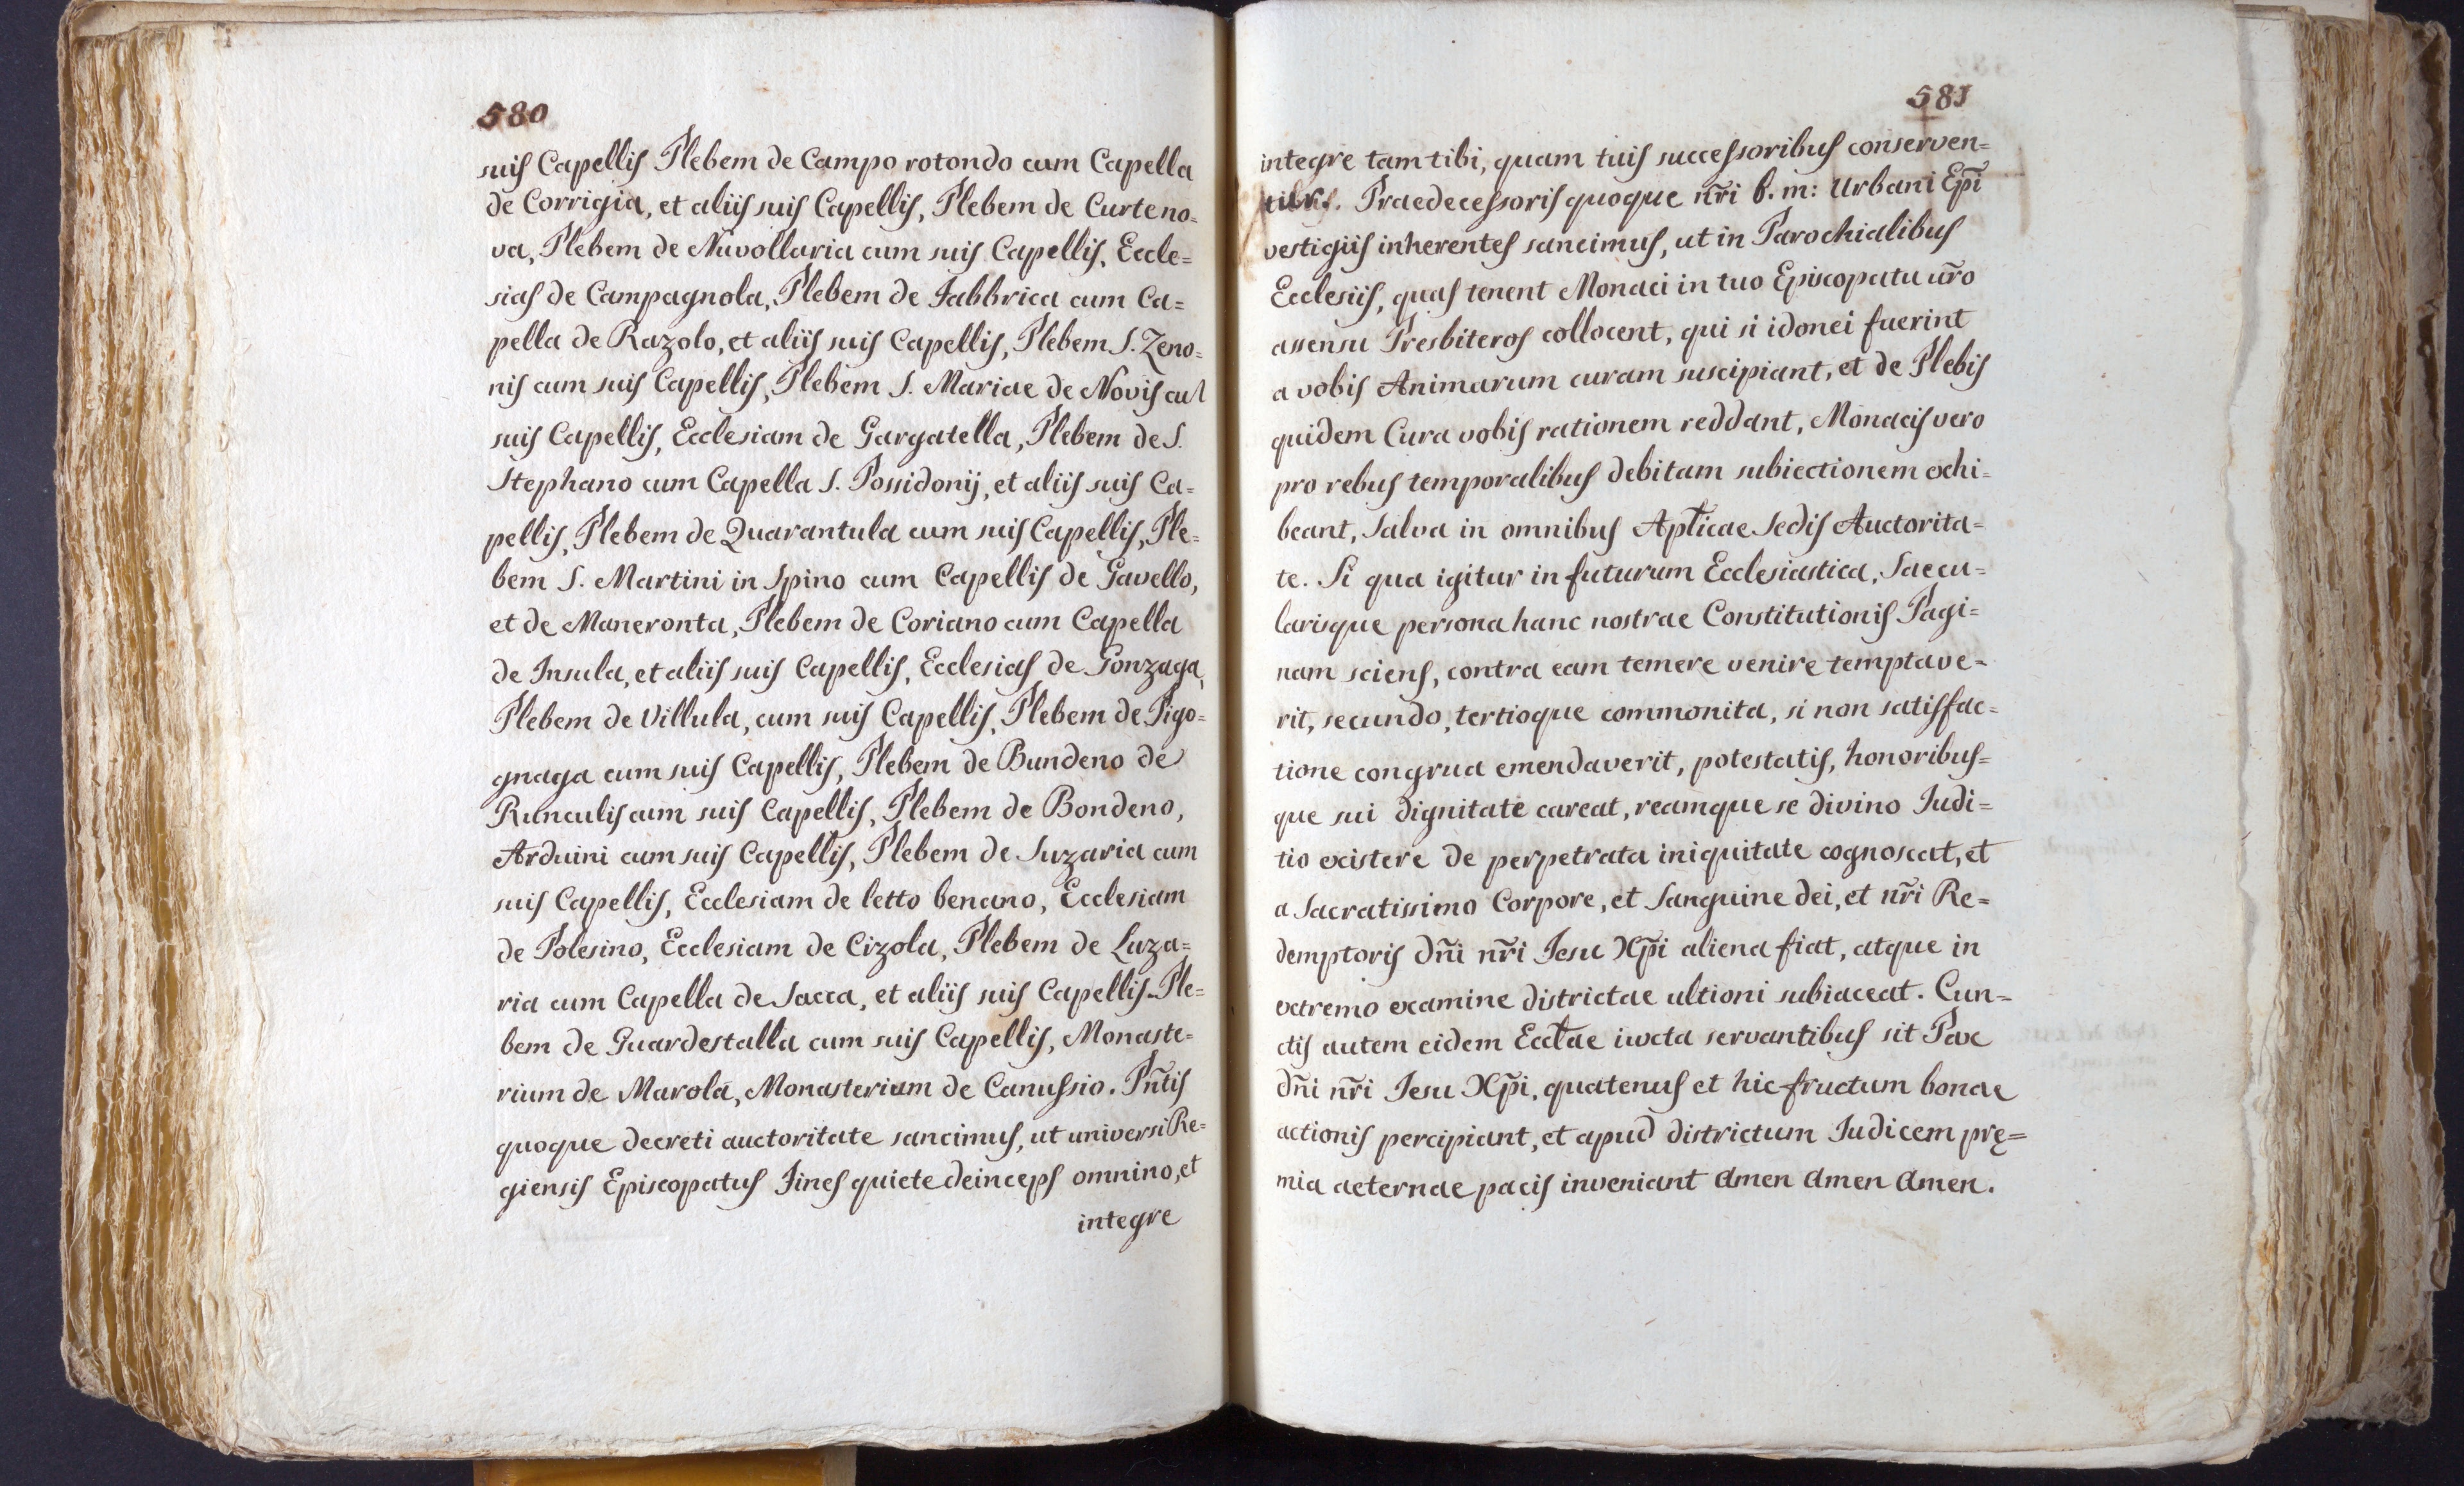 580
suis Capellis Plebem de Campo rotondo cum Capella
de Corrigia, et aliis suis Capellis, Plebem de Curteno=
va, Plebem de Nuvollaria cum suis Capellis, Eccle=
sias de Campagnola, Plebem de Fabbrica cum Ca=
pella de Razolo, et aliis suis Capellis, Plebem S. Zeno=
nis cum suis Capellis, Plebem S. Mariae de Novis cu
suis Capellis, Ecclesiam de Gargatella, Plebem de S.
Stephano cum Capella S. Possidonij, et aliis suis Ca=
pellis, Plebem de Quarantula cum suis Capellis, Ple=
bem S. Martini in Spino cum Capellis de Gavello,
et de Maneronta, Plebem de Coriano cum Capella
de Insula, et aliis suis Capellis, Ecclesias de Gonzaga,
Plebem de Villula, cum suis Capellis, Plebem de Pigo=
gnaga cum suis Capellis, Plebem de Bundeno de
Runculis cum suis Capellis, Plebem de Bondeno,
Arduini cum suis Capellis, Plebem de Suzaria cum
suis Capellis, Ecclesiam de letto benano, Ecclesiam
de Polesino, Ecclesiam de Cizola, Plebem de Luza=
ria cum Capella de Sacca, et aliis suis Capellis. Ple=
bem de Guardestalla cum suis Capellis, Monaste=
rium de Marola, Monasterium de Canussio. Pn̄tis
quoque decreti auctoritate sancimus, ut universi Re=
giensis Episcopatus Fines quiete deinceps omnino, et
integre
581
integre tam tibi, quam tuis successoribus conserven=
tur. Praedecessoris quoque nr̄i b. m: Urbani Ep̄i
vestigiis inherentes sancimus, ut in Parochialibus
Ecclesiis, quas tenent Monaci in tuo Episcopatu ur̄o
assensu Presbiteros collocent, qui si idonei fuerint
a vobis Animarum curam suscipiant, et de Plebis
quidem Cura vobis rationem reddant, Monacis vero
pro rebus temporalibus debitam subiectionem exhi=
beant, Salva in omnibus Aplicae Sedis Auctorita=
te. Si qua igitur in futurum Ecclesiastica, Saecu=
larisque persona hanc nostrae Constitutionis Pagi=
nam sciens, contra eam temere venire temptave=
rit, secundo, tertioque commonita, si non satisfac=
tione congrua emendaverit, potestatis, honoribus=
que sui dignitate careat, reamque se divino Iudi=
tio existere de perpetrata iniquitate cognoscat, et
a Sacratissimo Corpore, et Sanguine dei, et nr̄i Re=
demptoris dn̄i nr̄i Iesu Xp̄i aliena fiat, atque in
extremo examine districtae ultioni subiaceat. Cun=
ctis autem eidem Ecclae iuxta servantibus sit Pax
dn̄i nr̄i Iesu Xp̄i, quatenus et hic fructum bonae
actionis percipiant, et apud districtum Iudicem prę=
mia aeternae pacis inveniant Amen Amen Amen.